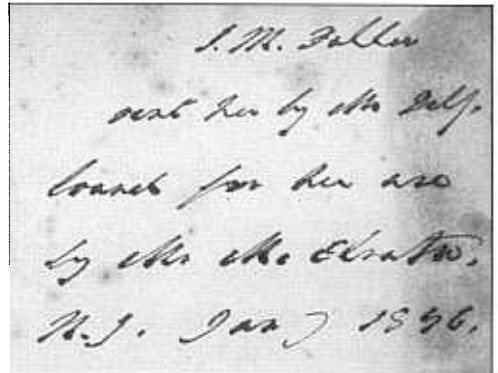 S. M. Fuller
sent her by Mr Delf.
loaned for her use
by Mr Mc Elrath.
N.Y. Jany 1846.